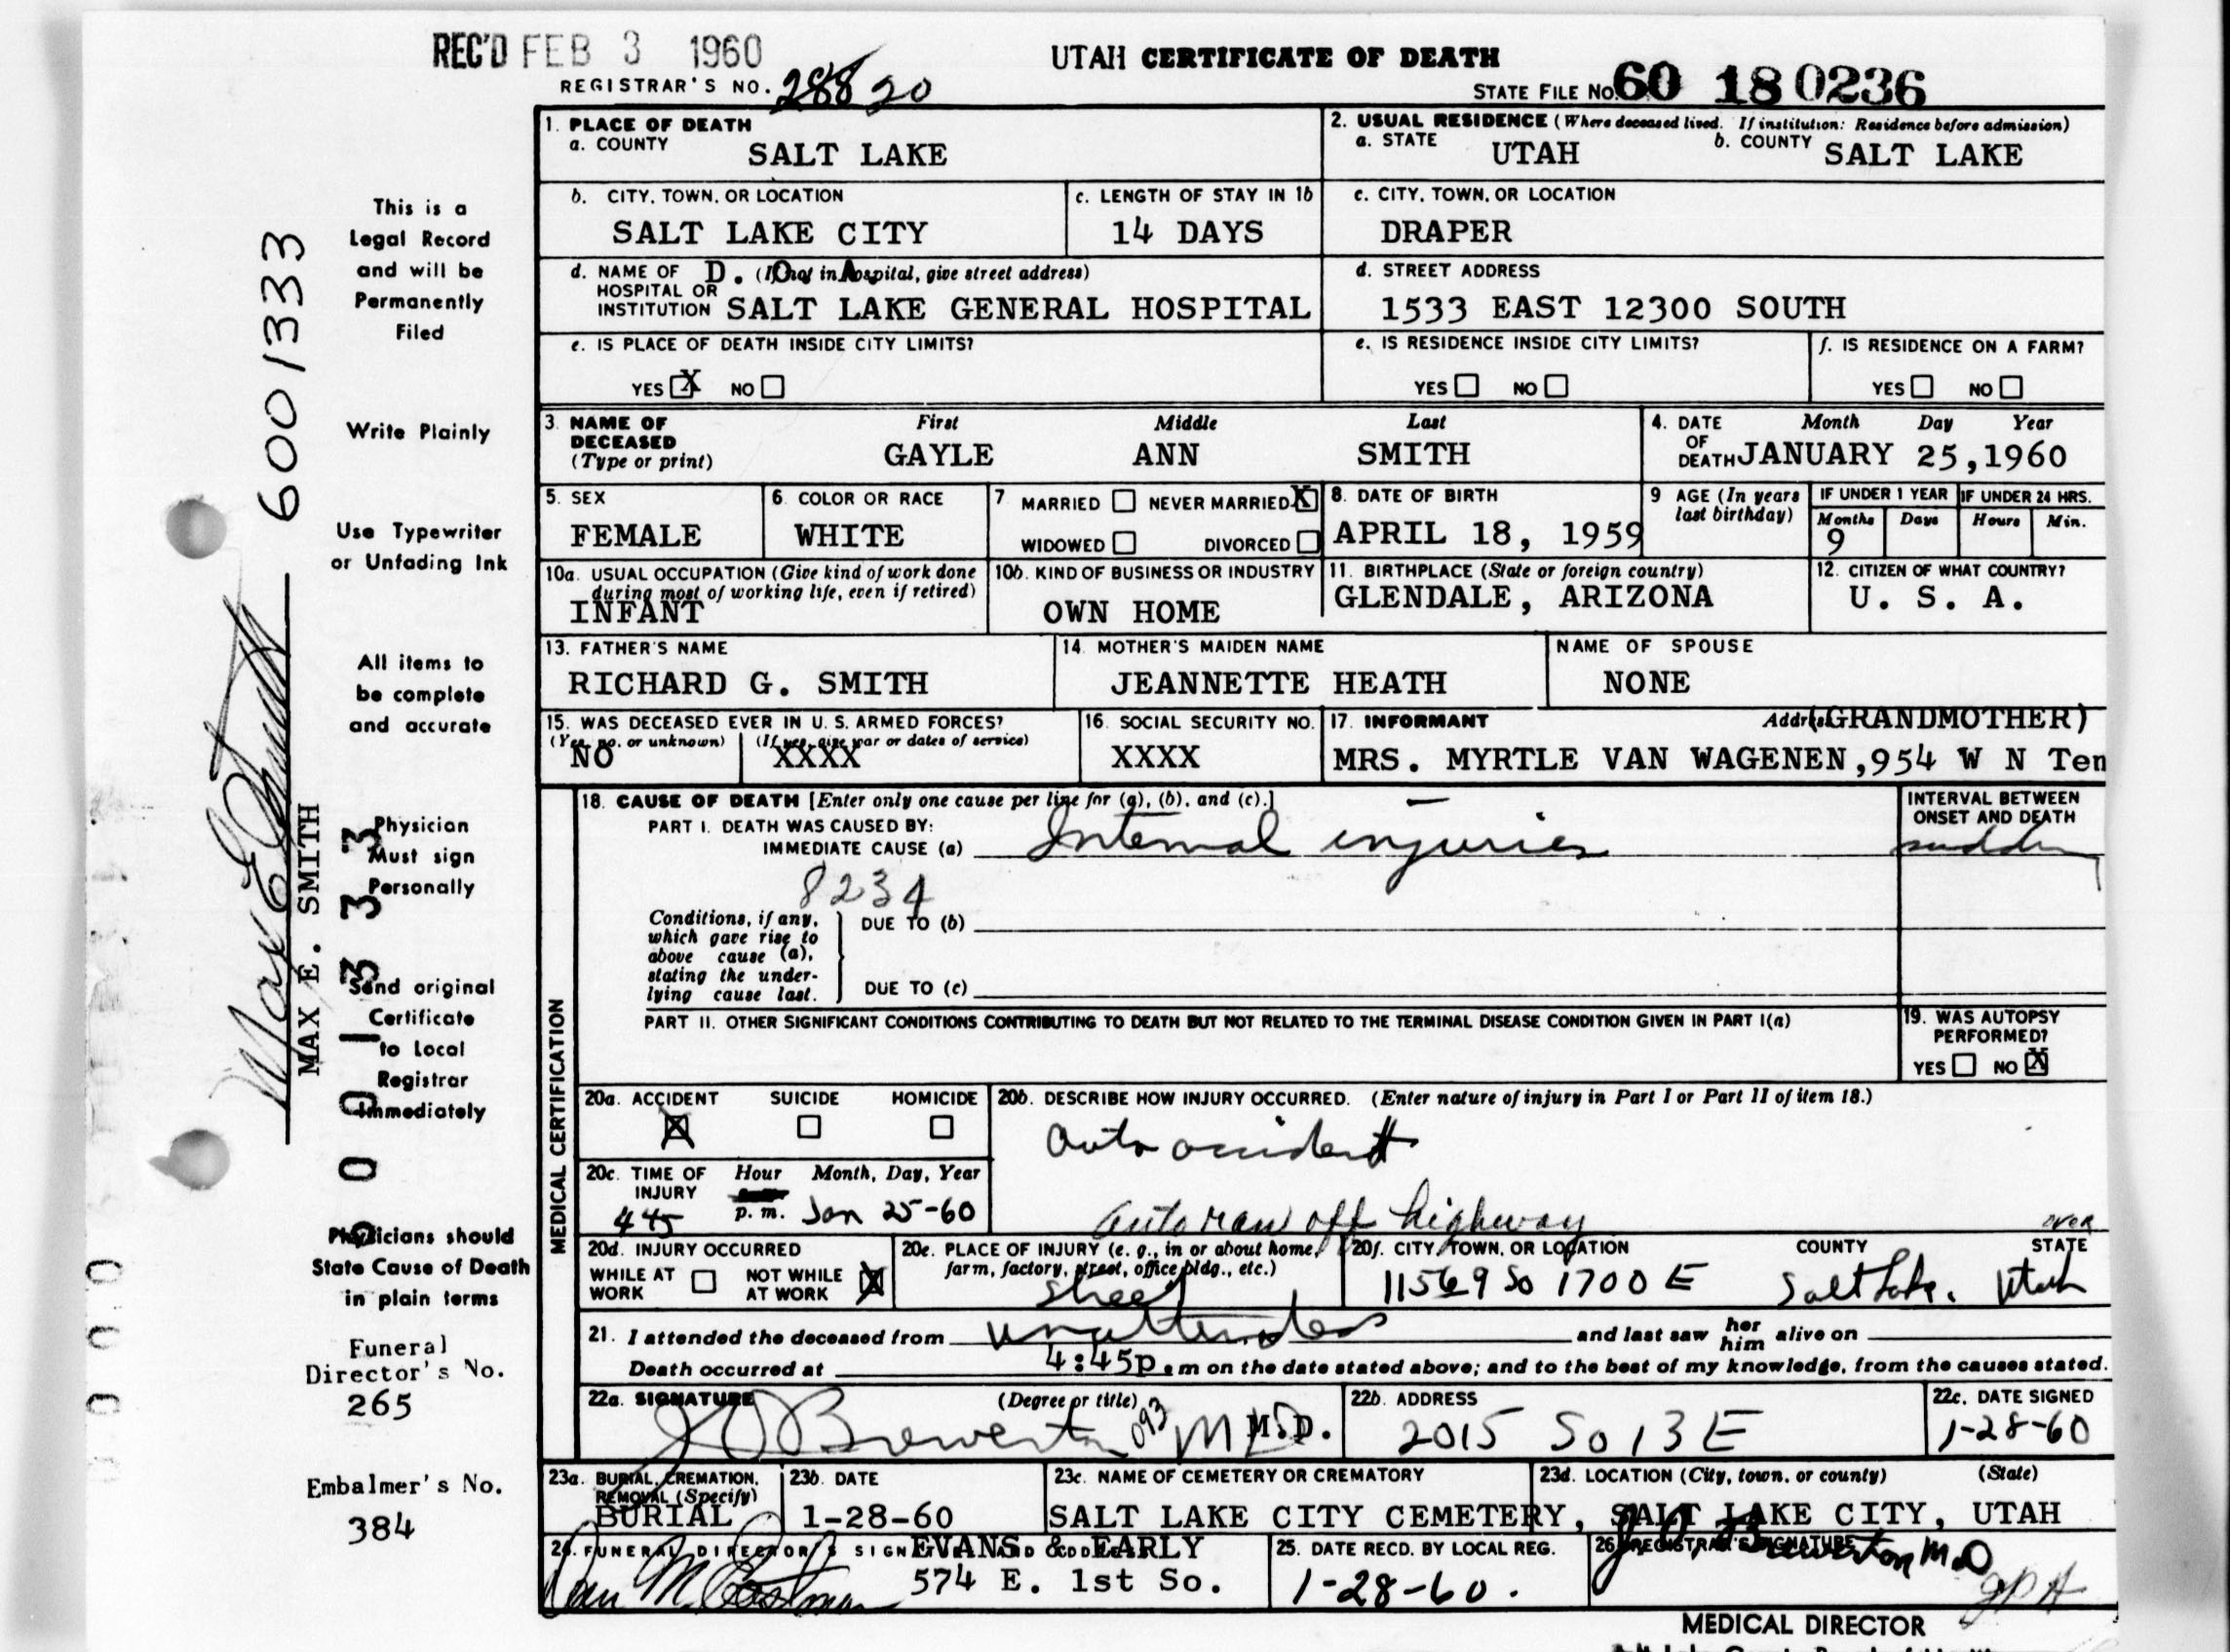 REC'D FEB 3 1960
UTAH CERTIFICATE OF DEATH
REGISTRAR'S NO. 288 20
STATE FILE NO. 60 18 0236
1. PLACE OF DEATH
a. COUNTY SALT LAKE
2. USUAL RESIDENCE (Where deceased lived. If institution: Residence before admission)
a. STATE UTAH b. COUNTY SALT LAKE
b. CITY, TOWN, OR LOCATION
SALT LAKE CITY
c. LENGTH OF STAY IN 1b
14 DAYS
c. CITY, TOWN, OR LOCATION
DRAPER
d. NAME OF HOSPITAL OR INSTITUTION (If not in hospital, give street address)
D. O. A.
SALT LAKE GENERAL HOSPITAL
d. STREET ADDRESS
1533 EAST 12300 SOUTH
e. IS PLACE OF DEATH INSIDE CITY LIMITS?
YES X NO
e. IS RESIDENCE INSIDE CITY LIMITS?
YES NO
f. IS RESIDENCE ON A FARM?
YES NO
3. NAME OF DECEASED (Type or print)
First Middle Last
GAYLE ANN SMITH
4. DATE OF DEATH Month Day Year
JANUARY 25, 1960
5. SEX
FEMALE
6. COLOR OR RACE
WHITE
7 MARRIED NEVER MARRIED X
WIDOWED DIVORCED
8. DATE OF BIRTH
APRIL 18, 1959
9 AGE (In years last birthday)
IF UNDER 1 YEAR IF UNDER 24 HRS.
Months Days Hours Min.
9
10a. USUAL OCCUPATION (Give kind of work done during most of working life, even if retired)
INFANT
10b. KIND OF BUSINESS OR INDUSTRY
OWN HOME
11. BIRTHPLACE (State or foreign country)
GLENDALE, ARIZONA
12. CITIZEN OF WHAT COUNTRY?
U. S. A.
13. FATHER'S NAME
RICHARD G. SMITH
14. MOTHER'S MAIDEN NAME
JEANNETTE HEATH
NAME OF SPOUSE
NONE
15. WAS DECEASED EVER IN U. S. ARMED FORCES?
(Yes, no, or unknown) (If yes, give war or dates of service)
NO XXXX
16. SOCIAL SECURITY NO.
XXXX
17. INFORMANT Address (GRANDMOTHER)
MRS. MYRTLE VAN WAGENEN, 954 W N Tem
18. CAUSE OF DEATH [Enter only one cause per line for (a), (b), and (c).]
PART I. DEATH WAS CAUSED BY:
IMMEDIATE CAUSE (a) Internal injuries
INTERVAL BETWEEN ONSET AND DEATH
sudden
8234
Conditions, if any, which gave rise to above cause (a), stating the underlying cause last.
DUE TO (b)
DUE TO (c)
PART II. OTHER SIGNIFICANT CONDITIONS CONTRIBUTING TO DEATH BUT NOT RELATED TO THE TERMINAL DISEASE CONDITION GIVEN IN PART I(a)
19. WAS AUTOPSY PERFORMED?
YES NO X
MEDICAL CERTIFICATION
20a. ACCIDENT X SUICIDE HOMICIDE
20b. DESCRIBE HOW INJURY OCCURRED. (Enter nature of injury in Part I or Part II of item 18.)
auto accident
auto ran off highway
over
20c. TIME OF INJURY Hour Month, Day, Year
445 p. m. Jan 25-60
20d. INJURY OCCURRED
WHILE AT WORK NOT WHILE AT WORK X
20e. PLACE OF INJURY (e. g., in or about home, farm, factory, street, office bldg., etc.)
street
20f. CITY, TOWN, OR LOCATION COUNTY STATE
11569 So 1700 E Salt Lake. Utah
21. I attended the deceased from unattended and last saw her him alive on
Death occurred at 4:45p.m on the date stated above; and to the best of my knowledge, from the causes stated.
22a. SIGNATURE (Degree or title)
J O Brewerton 093 MD M.D.
22b. ADDRESS
2015 So 13 E
22c. DATE SIGNED
1-28-60
23a. BURIAL, CREMATION, REMOVAL (Specify)
BURIAL
23b. DATE
1-28-60
23c. NAME OF CEMETERY OR CREMATORY
SALT LAKE CITY CEMETERY,
23d. LOCATION (City, town, or county) (State)
SALT LAKE CITY, UTAH
24. FUNERAL DIRECTOR'S SIGNATURE AND ADDRESS
EVANS & EARLY
574 E. 1st So.
Dan M. Eastman
25. DATE RECD. BY LOCAL REG.
1-28-60.
26. REGISTRAR'S SIGNATURE
J. O. Brewerton M.D
JPH
MEDICAL DIRECTOR
This is a
Legal Record
and will be
Permanently
Filed
Write Plainly
Use Typewriter
or Unfading Ink
All items to
be complete
and accurate
Physician
Must sign
Personally
Send original
Certificate
to Local
Registrar
Immediately
Physicians should
State Cause of Death
in plain terms
Funeral
Director's No.
265
Embalmer's No.
384
6001333
Max E Smith
MAX E. SMITH
6001333